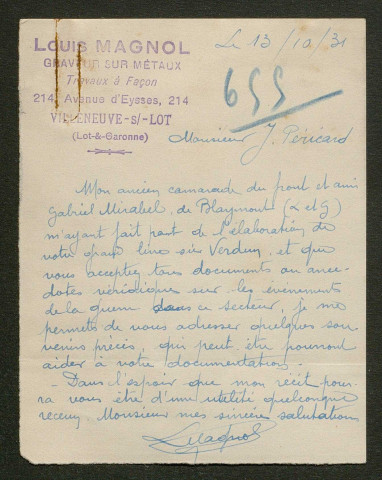 LOUIS MAGNOL
GRAVEUR SUR MÉTAUX
Travaux à Façon
214, Avenue d'Eysses, 214
VILLENEUVE-S/-LOT
(Lot-&-Garonne)
Le 13/10/31
655
Monsieur J. Péricard
Mon ancien camarade du front et ami
Gabriel Mirabel, de Blaymont (L et G)
m'ayant fait part de l'élaboration de
votre grand livre sur Verdun, et que
vous acceptez tous documents ou anec-
dotes véridiques sur les événements
de la guerre dans ce secteur, je me
permets de vous adresser quelques sou-
venirs précis, qui peut être pourront
aider à votre documentation.
- Dans l'espoir que mon récit pour-
ra vous être d'une utilité quelconque
recevez Monsieur mes sincères salutations
LMagnol